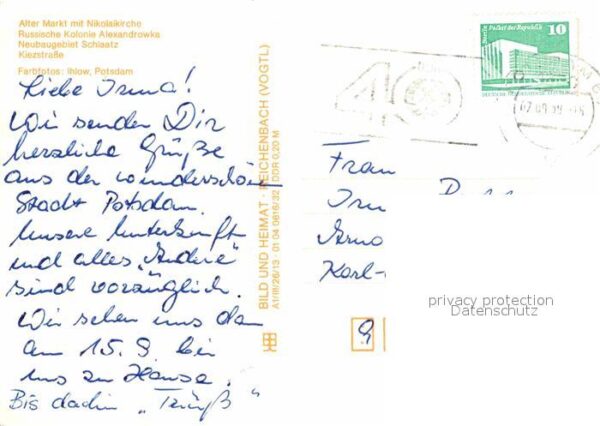 Alter Markt mit Nikolaikirche
Russische Kolonie Alexandrowka
Neubaugebiet Schlaatz
Kiezstraße
Farbfotos: Ihlow, Potsdam
Liebe Irma!
Wir senden Dir
herzliche Grüße
aus der wunderschön
Stadt Potsdam.
Unsere Unterkunft
und alles „Andere"
sind vorzüglich.
Wir sehen uns dan
am 15.9. bei
uns zu Hause.
Bis dadin „Tschüß"
BILD UND HEIMAT · REICHENBACH (VOGTL)
A1/III/26/13 · 01 04 0616/32 DDR 0,20 M
Berlin Palast der Republik
10
DEUTSCHE DEMOKRATISCHE REPUBLIK
40
Frau
Karl-
9
privacy protection
Datenschutz